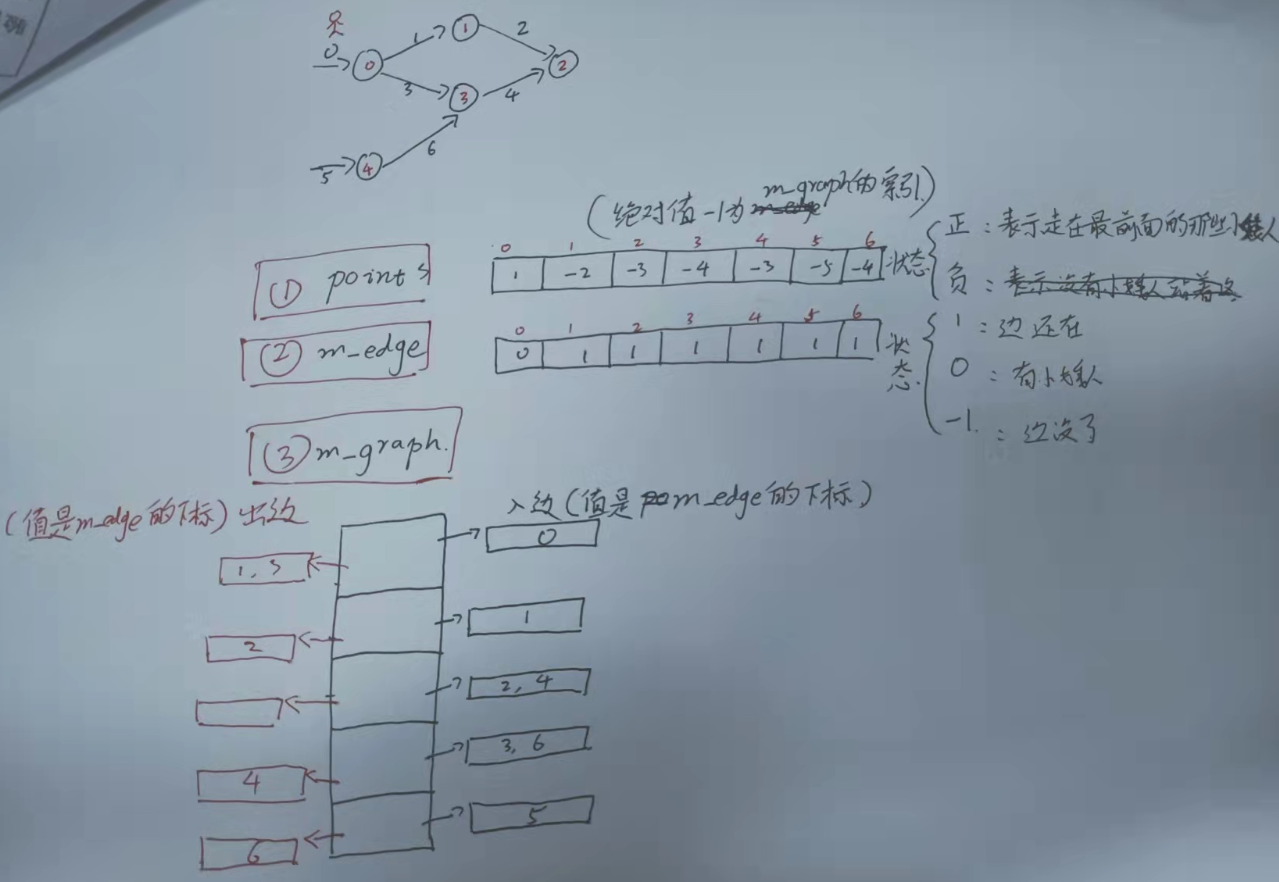 0 1 1 2
0 2
3 3 4
5 4 6
(绝对值-1为m_graph的索引)
0 1 2 3 4 5 6
① points 1 -2 -3 -4 -3 -5 -4 状态 正:表示走在最前面的那些小矮人
负:
0 1 2 3 4 5 6
② m_edge 0 1 1 1 1 1 1 状态 1:边还在
0:有小矮人
-1:边没了
③ m_graph.
(值是m_edge的下标)出边 入边(值是m_edge的下标)
0
1, 3
1
2
2, 4
3, 6
4
5
6